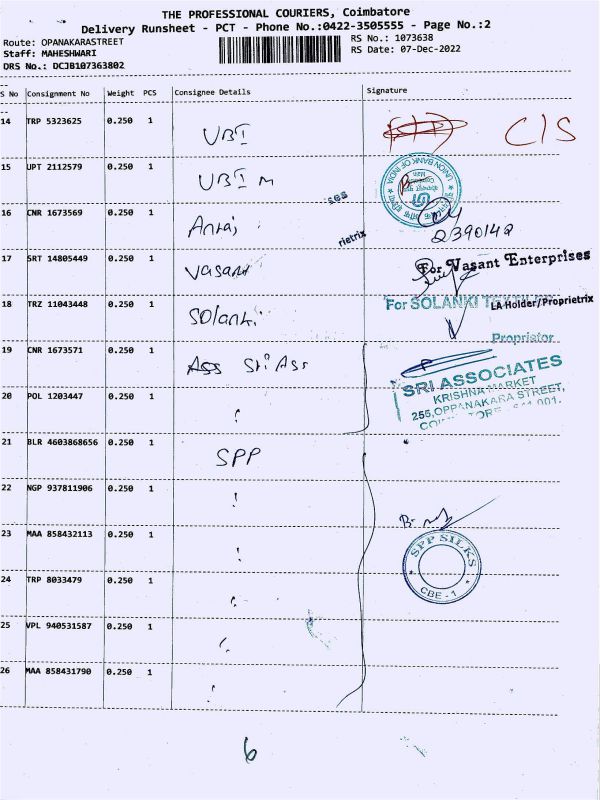 THE PROFESSIONAL COURIERS, Coimbatore
Delivery Runsheet - PCT - Phone No.:0422-3505555 - Page No.:2
Route: OPANAKARASTREET
RS No.: 1073638
Staff: MAHESHWARI
RS Date: 07-Dec-2022
DRS No.: DCJB107363802
S No Consignment No Weight PCS Consignee Details Signature
14 TRP 5323625 0.250 1 UBI C/S
15 UPT 2112579 0.250 1 UBI M
UNION BANK OF INDIA
16 CNR 1673569 0.250 1
17 SRT 14805449 0.250 1 Vasant
For Vasant Enterprises
rietrix
18 TRZ 11043448 0.250 1 Solanki
For SOLANKI
LA Holder/Proprietrix
Proprietor
19 CNR 1673571 0.250 1 Ass Sri Ass
SRI ASSOCIATES
KRISHNA MARKET
255, OPPANAKARA STREET,
20 POL 1203447 0.250 1 "
21 BLR 4603868656 0.250 1 SPP
22 NGP 937811906 0.250 1
23 MAA 858432113 0.250 1
SPP SILKS
CBE - 1
24 TRP 8033479 0.250 1
25 VPL 940531587 0.250 1
26 MAA 858431790 0.250 1
6